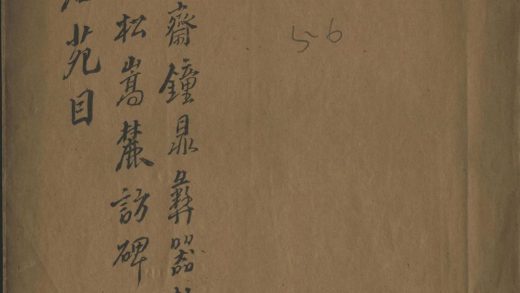 56
齋鐘鼎彝器
松嵩麓訪碑
苑目